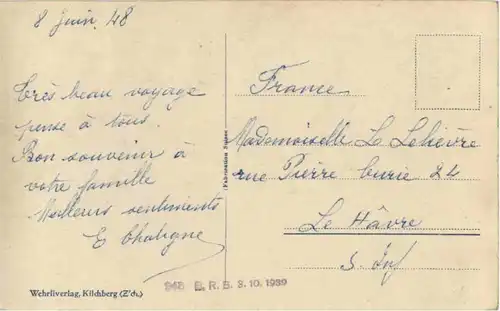 8 Juin. 48
Très beau voyage
pense à tous.
Bon souvenir à
votre famille
Meilleurs sentiments
E Chaligne
Wehrliverlag, Kilchberg (Zch.)
(Fabrication Suisse)
France
Mademoiselle L Lelièvre
rue Pierre Curie 24
Le Hâvre
S. Inf
B. R. B. 3. 10. 1939